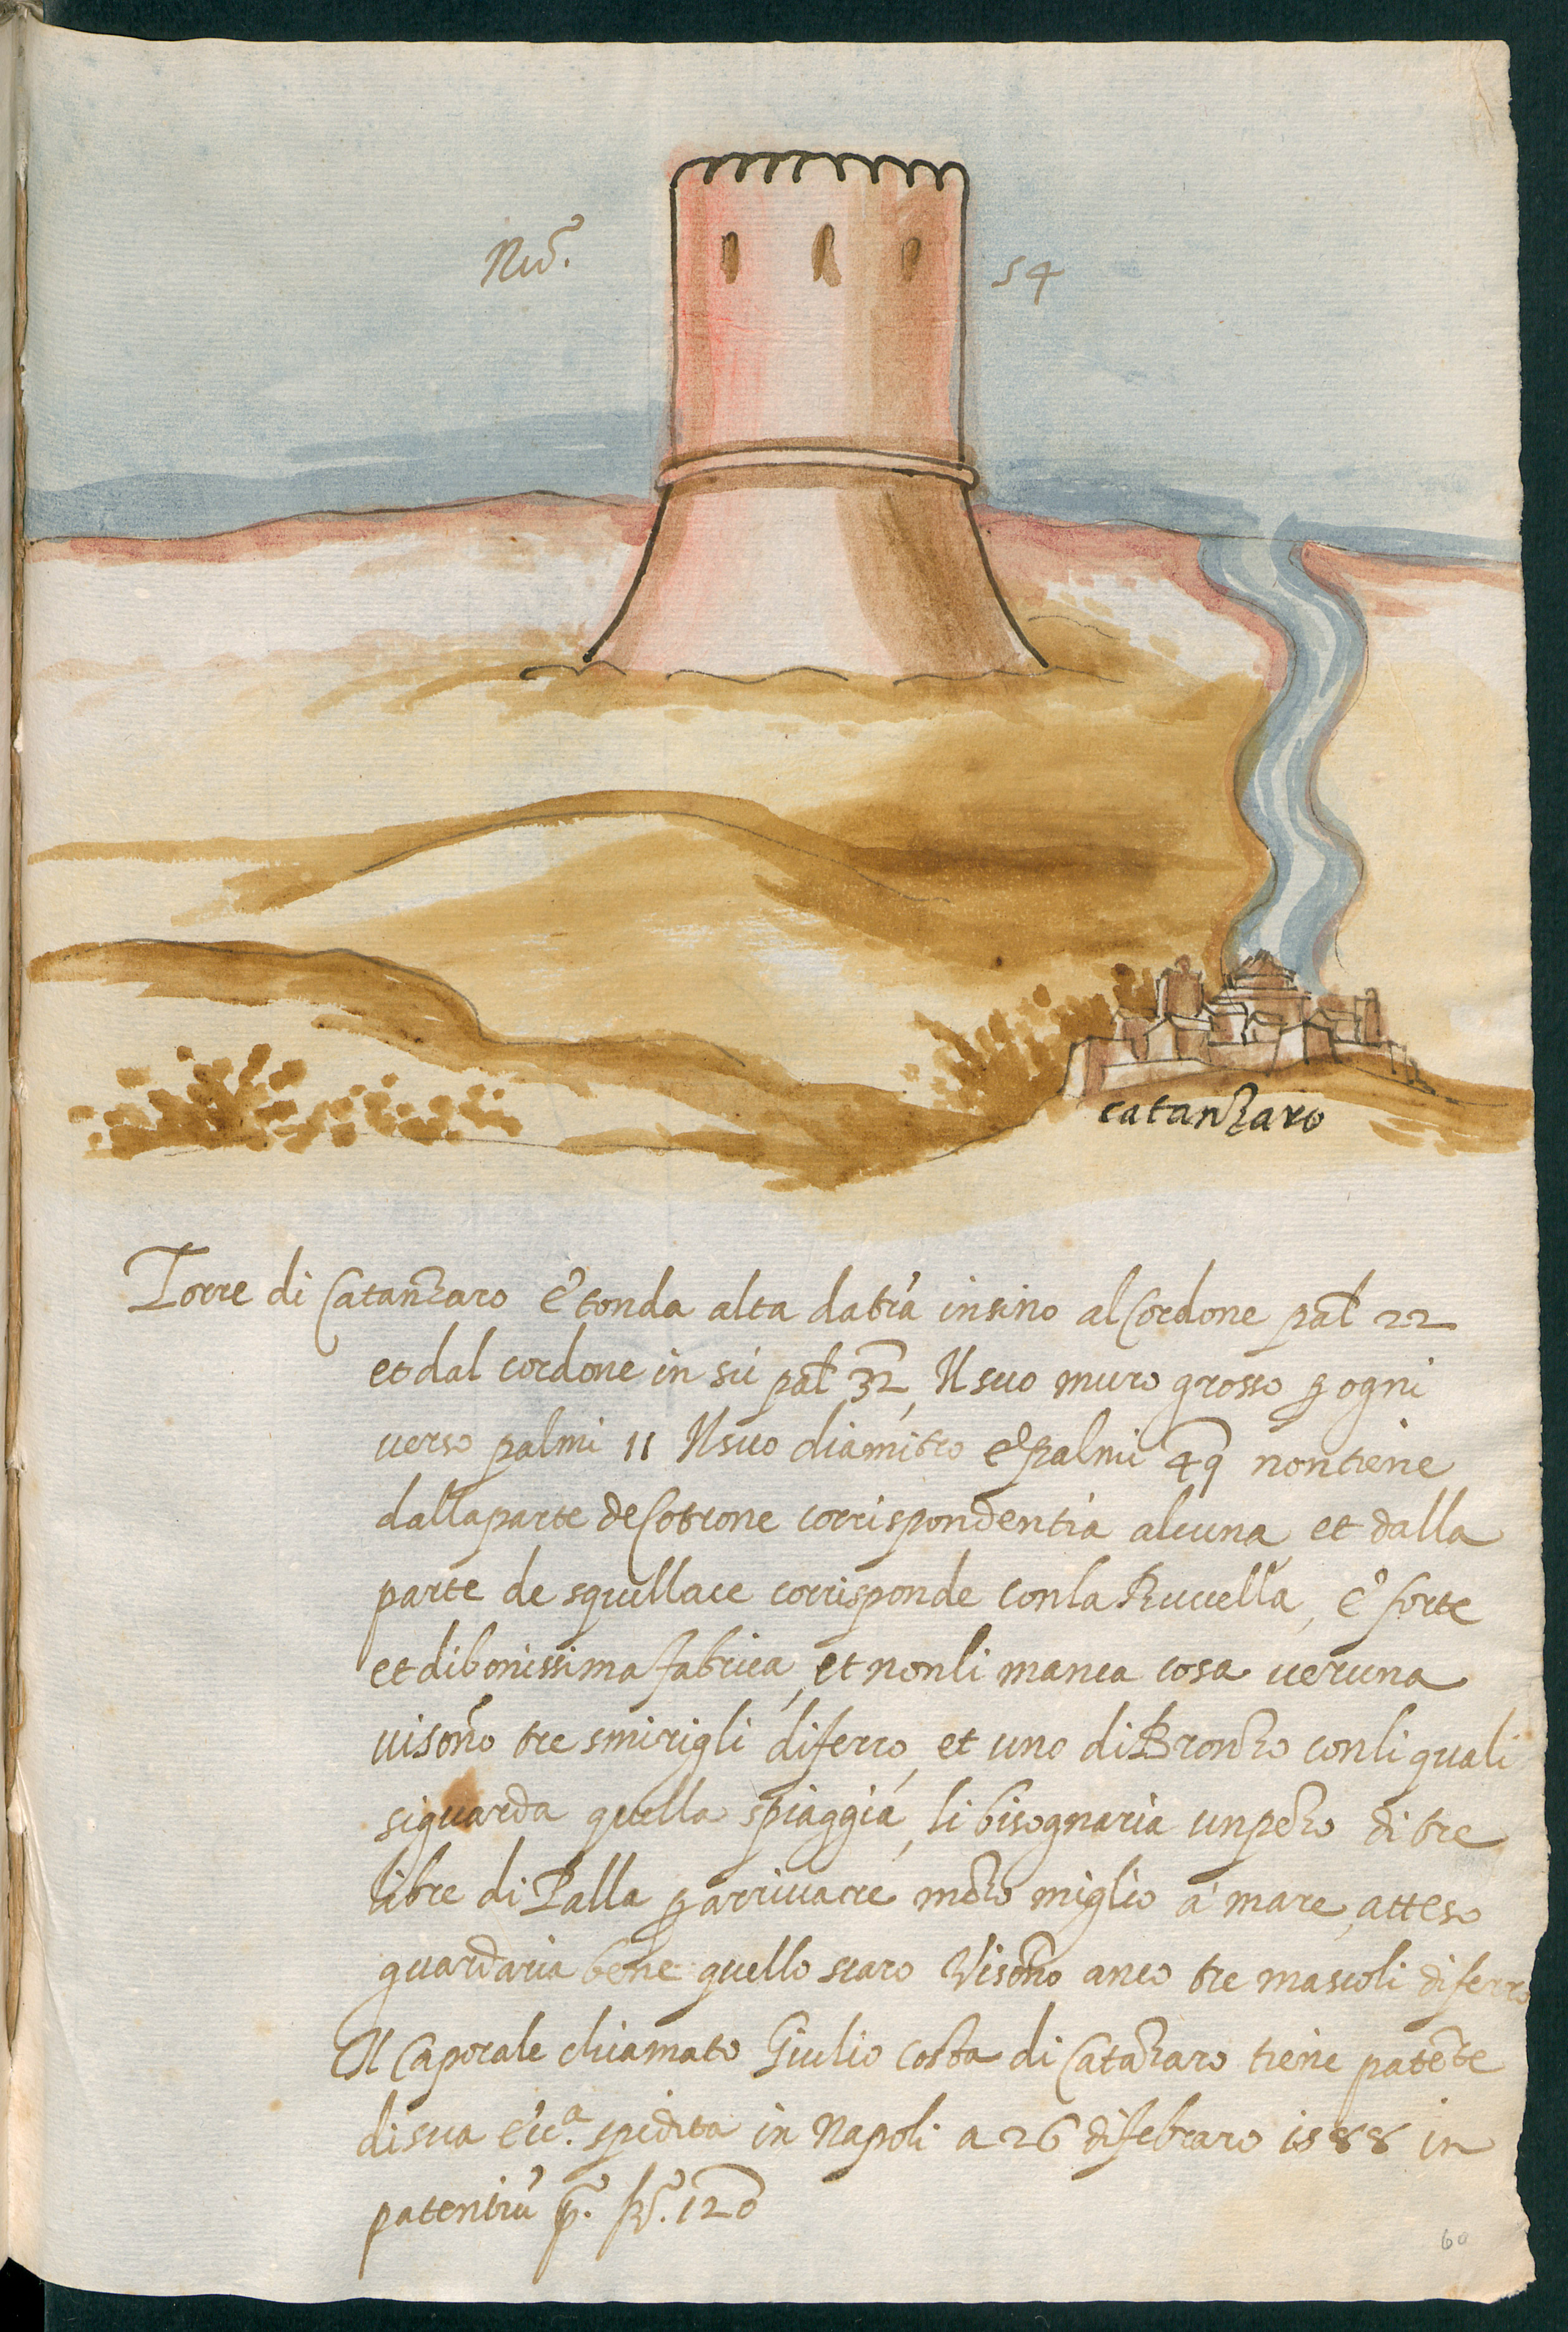 Nu͂o. 54
catanzaro
Torre di Catanzaro è tonda alta da trà insino al Cordone pal 22
et dal cordone in sù pal 32, Il suo muro grosso ꝑ ogni
verso palmi 11 Il suo diamitro è Palmi 49 non tiene
dalla parte de Cotrone corrispondentia alcuna, et dalla
parte de squillace corrisponde con la Ruccella, è forte
et di bonissima fabrica, et non li manca cosa veruna
vi sono tre smirigli di ferro, et uno di Bronzo con li quali
si guarda quella spiaggia, li bisognaria un pezo di tre
libre di Palla ꝑ arrivare mezo miglio à mare, atteso
guardaria bene quello scaro Vi sono anco tre mascoli di ferro
Il Caporale chiamato Giulio Costa di Catazaro tiene patete
di sua Ecc.ª spidita in Napoli a 26 di febraro 1588 in
patentiũ p.º fo. 120
60